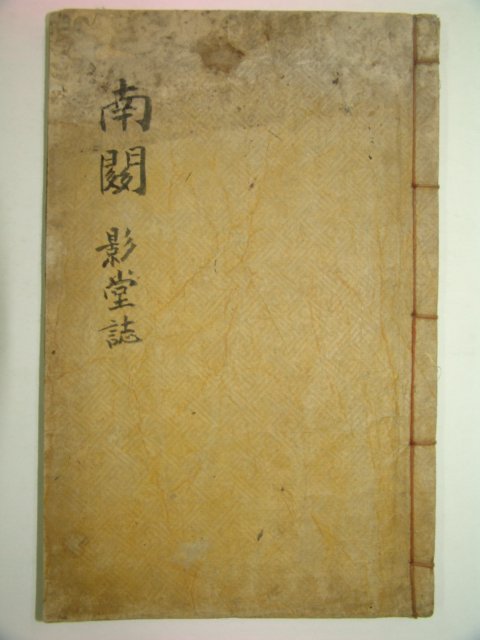 南
影堂誌